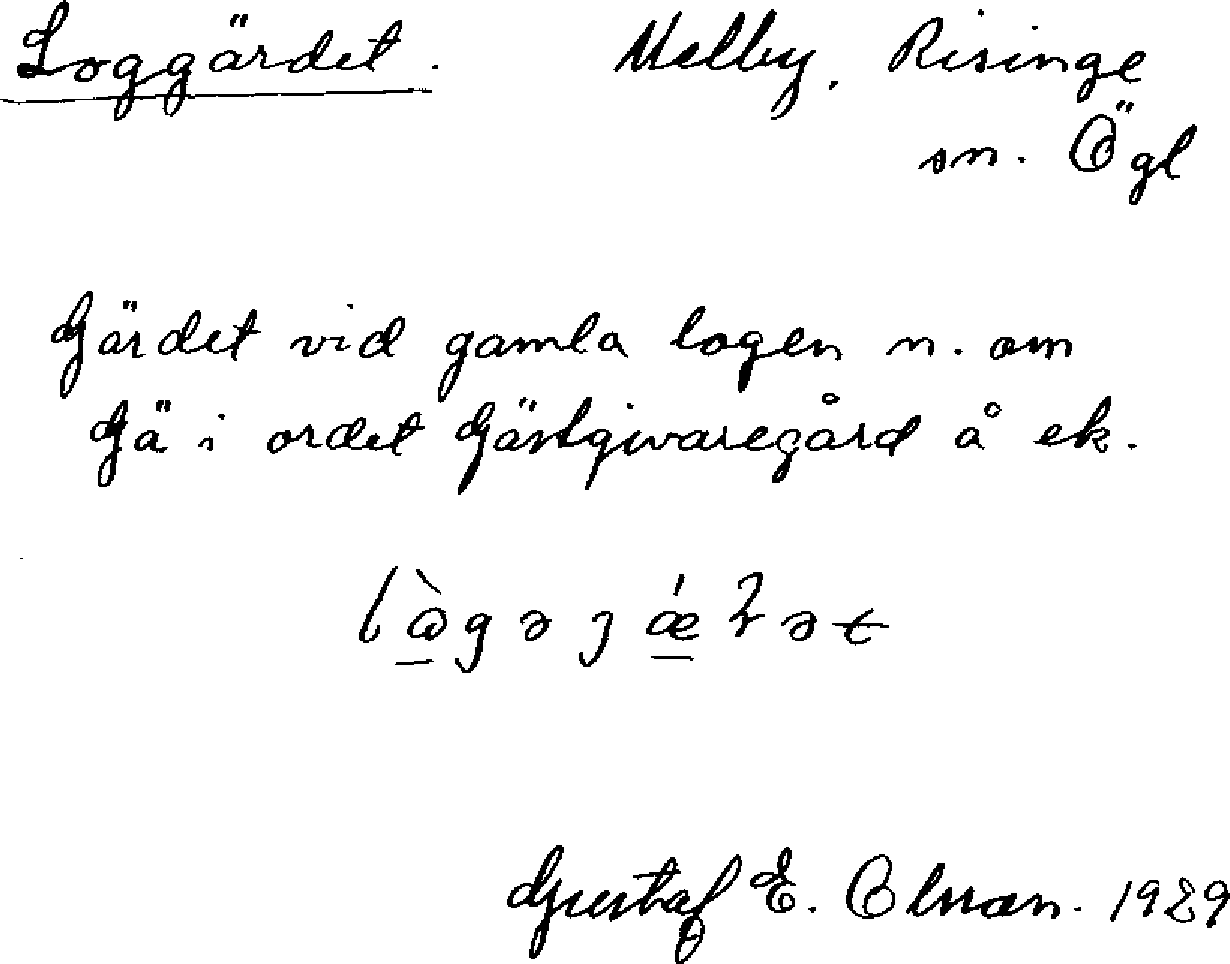 Loggärdet. Melby, Risinge
sn. Ögl
Gärdet vid gamla logen n. om
Gä i ordet Gästgivaregård å ek.
Gustaf E. Olsson. 1929